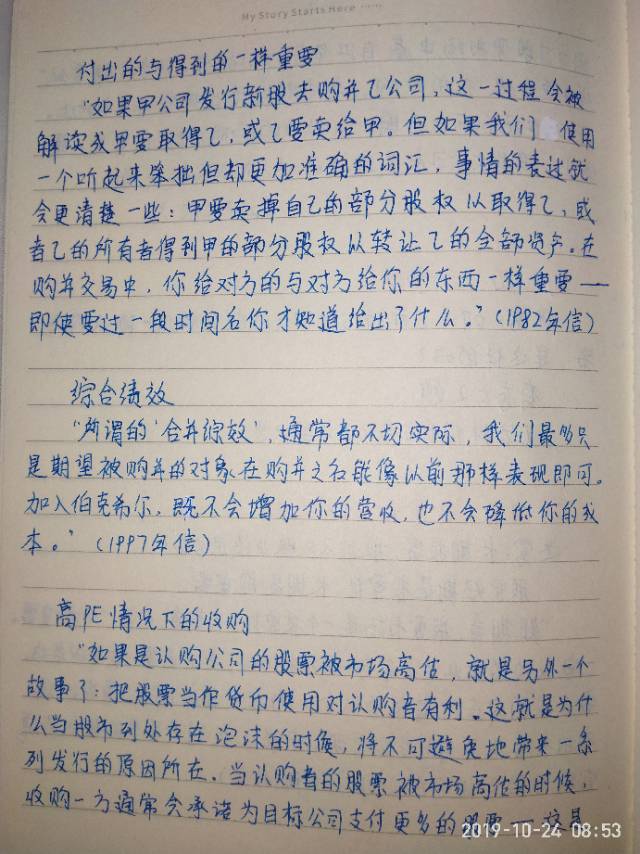 My Story Starts Here ······
付出的与得到的一样重要
“如果甲公司发行新股去购并乙公司，这一过程会被
解读成甲要取得乙，或乙要卖给甲。但如果我们 使用
一个听起来笨拙但却更加准确的词汇，事情的表述就
会更清楚一些：甲要卖掉自己的部分股权以取得乙，或
者乙的所有者得到甲的部分股权以转让乙的全部资产。在
购并交易中，你给对方的与对方给你的东西一样重要——
即使要过一段时间后你才知道给出了什么。”（1982年信）
综合绩效
“所谓的‘合并综效’，通常都不切实际，我们最多只
是期望被购并的对象在购并之后能像以前那样表现即可。
加入伯克希尔，既不会增加你的营收，也不会降低你的成
本。”（1997年信）
高PE情况下的收购
“如果是认购公司的股票被市场高估，就是另外一个
故事了：把股票当作货币使用对认购者有利。这就是为什
么当股市到处存在泡沫的时候，将不可避免地带来一系
列发行的原因所在。当认购者的股票被市场高估的时候，
收购一方通常会承诺为目标公司支付更多的股票——这是
2019-10-24 08:53